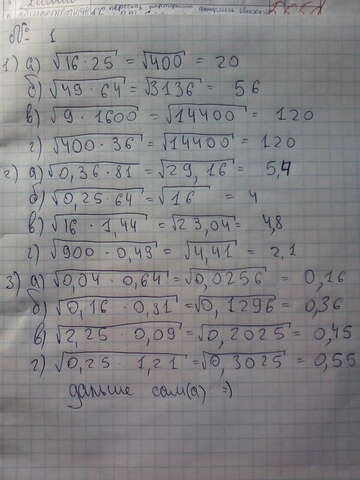 № 1
1) а) √16 · 25 = √400 = 20
б) √49 · 64 = √3136 = 56
в) √9 · 1600 = √14400 = 120
г) √400 · 36 = √14400 = 120
2) а) √0,36 · 81 = √29,16 = 5,4
б) √0,25 · 64 = √16 = 4
в) √16 · 1,44 = √23,04 = 4,8
г) √900 · 0,49 = √4,41 = 2,1
3) а) √0,04 · 0,64 = √0,0256 = 0,16
б) √0,16 · 0,81 = √0,1296 = 0,36
в) √2,25 · 0,09 = √0,2025 = 0,45
г) √0,25 · 1,21 = √0,3025 = 0,55
дальше сам(а) =)